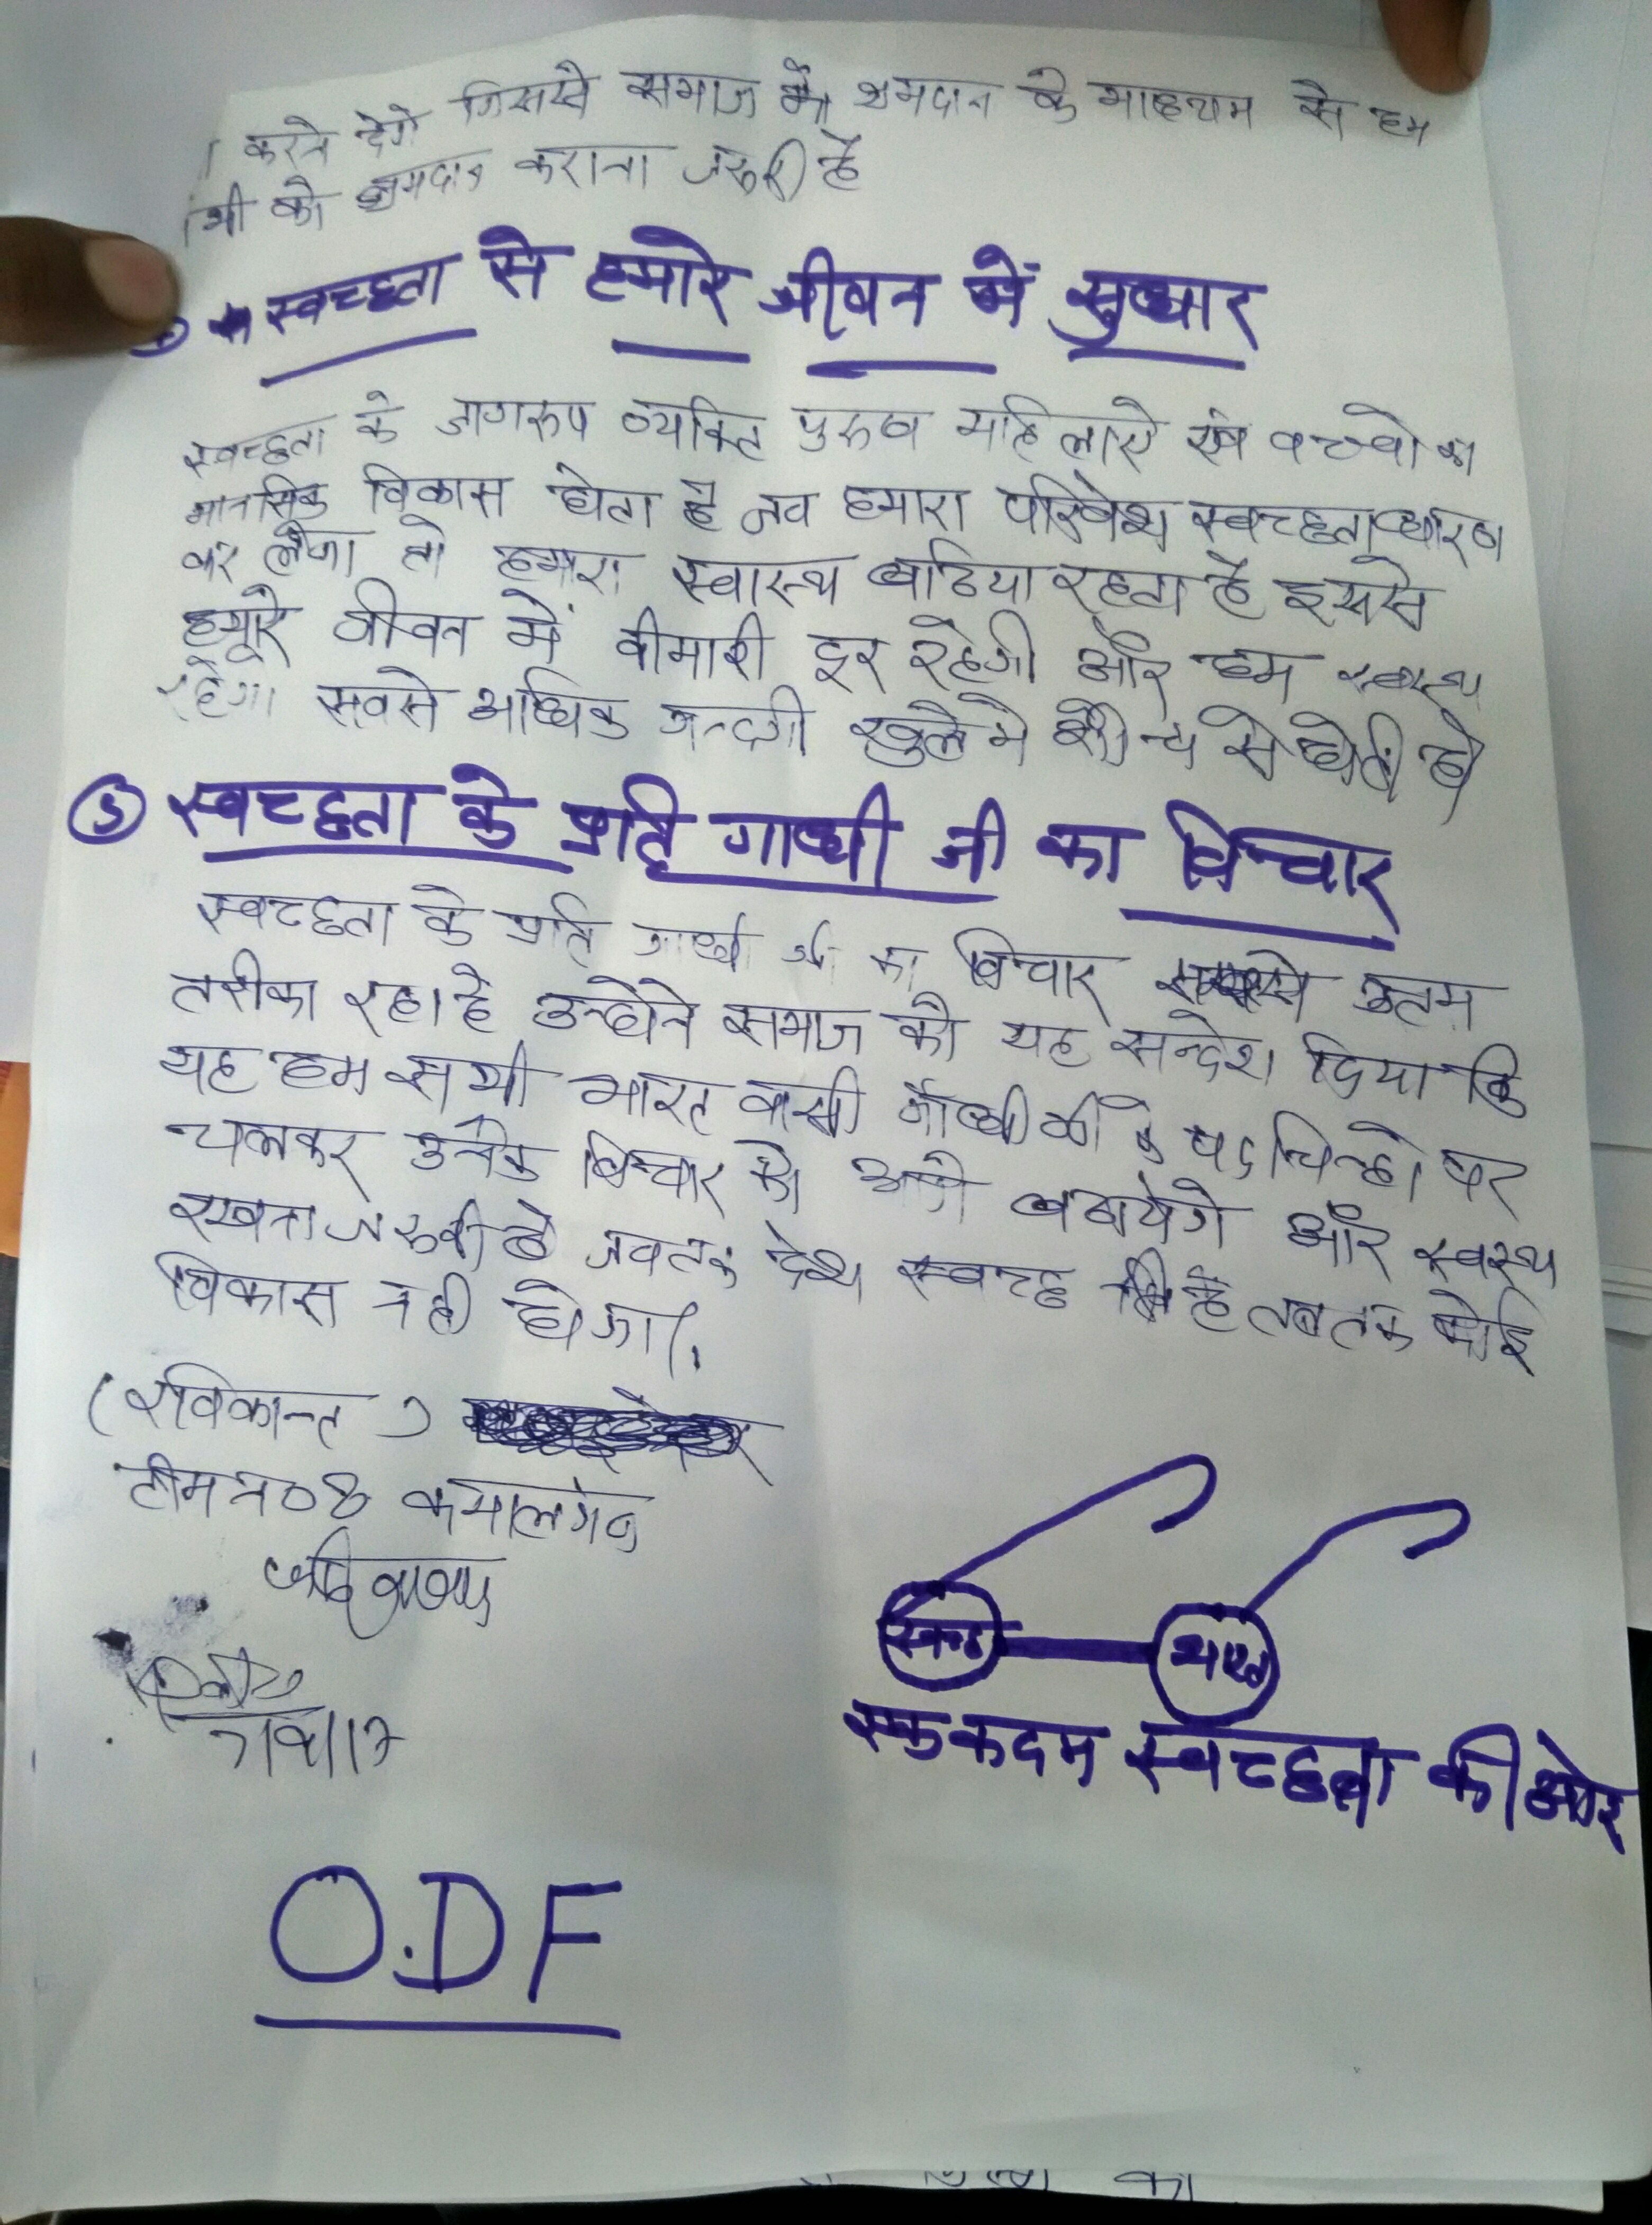 करने देगे जिससे समाज को श्रमदान के माध्यम से हम
भी को श्रमदान कराना जरूरी है
स्वच्छता से हमारे जीवन में सुधार
स्वच्छता के जागरुप व्यक्ति पुरुष महिलाऐ एंव वच्चो का
मानसिक विकास होता है जव हमारा परिवेश स्वच्छता धारण
कर लेगा तो हमारा स्वास्थ बढिया रहता है इससे
हमारे जीवन में वीमारी दूर रहेगी और हम स्वस्थ
रहेगा सवसे अधिक गन्दगी खुले मे शौच से होती है
⑤ स्वच्छता के प्रति गाधी जी का विचार
स्वच्छता के प्रति गाधी जी का विचार सबसे उतम
तरीका रहा है उन्होने समाज को यह सन्देश दिया कि
यह हम सभी भारत वासी गाँधी जी के पद चिन्हो पर
चलकर उनके विचार को आगे बढायेगे और स्वस्थ
रखना जरुरी है जवतक देश स्वच्छ है तबतक कोई
विकास नही होगा।
(रविकान्त)
टीम न० 8 कमालगंज
स्वच्छ भारत
एक कदम स्वच्छता की ओर
O.DF
का